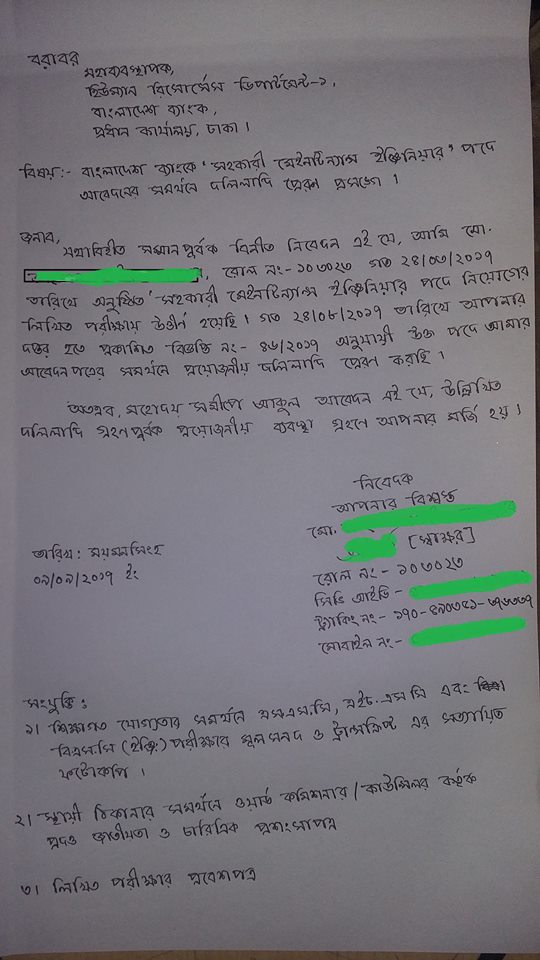 বরাবর
মহাব্যবস্থাপক,
হিউম্যান রিসোর্সেস ডিপার্টমেন্ট-১,
বাংলাদেশ ব্যাংক,
প্রধান কার্যালয়, ঢাকা।
বিষয়:- বাংলাদেশ ব্যাংকে 'সহকারী মেইনটিন্যান্স ইঞ্জিনিয়ার' পদে
আবেদনের সমর্থনে দলিলাদি প্রেরণ প্রসঙ্গে।
জনাব,
যথাবিহীত সম্মান পূর্বক বিনীত নিবেদন এই যে, আমি মো.
, রোল নং- ১০৩০২৩ গত ২৪/০৩/২০১৭
তারিখে অনুষ্ঠিত 'সহকারী মেইনটিন্যান্স ইঞ্জিনিয়ার পদে নিয়োগের
লিখিত পরীক্ষায় উত্তীর্ণ হয়েছি। গত ২৪/০৮/২০১৭ তারিখে আপনার
দপ্তর হতে প্রকাশিত বিজ্ঞপ্তি নং- ৪৬/২০১৭ অনুযায়ী উক্ত পদে আমার
আবেদন পত্রের সমর্থনে প্রয়োজনীয় দলিলাদি প্রেরণ করছি।
অতএব, মহোদয় সমীপে আকুল আবেদন এই যে, উল্লিখিত
দলিলাদি গ্রহণ পূর্বক প্রয়োজনীয় ব্যবস্থা গ্রহণে আপনার মর্জি হয়।
নিবেদক
আপনার বিশ্বস্ত
মো.
[স্বাক্ষর]
তারিখ: ময়মনসিংহ
০৯/০৯/২০১৭ ইং
রোল নং - ১০৩০২৩
সিভি আইডি -
ট্র্যাকিং নং -
মোবাইল নং -
সংযুক্তি:
১। শিক্ষাগত যোগ্যতার সমর্থনে এস.এস.সি, এইচ.এস.সি এবং
বিএসসি (ইঞ্জি:) পরীক্ষার মূল সনদ ও ট্রান্সক্রিপ্ট এর সত্যায়িত
ফটোকপি।
২। স্থায়ী ঠিকানার সমর্থনে ওয়ার্ড কমিশনার/কাউন্সিলর কর্তৃক
প্রদত্ত জাতীয়তা ও চারিত্রিক প্রশংসাপত্র
৩। লিখিত পরীক্ষার প্রবেশপত্র